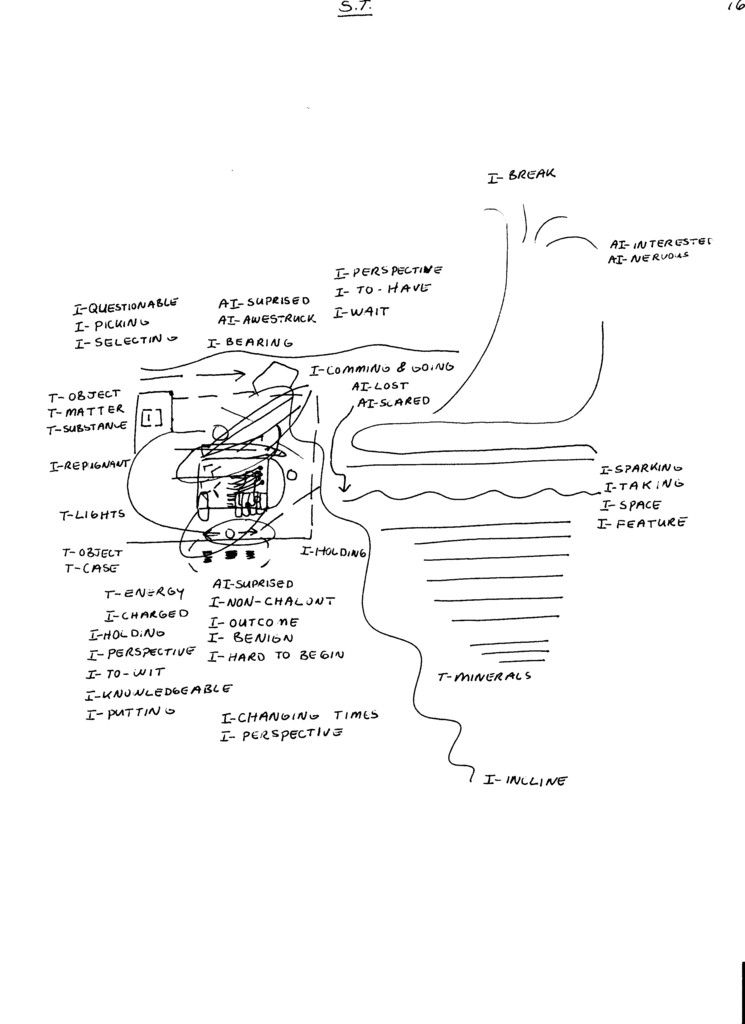 S.T.
16
I- BREAK
AI-INTERESTE
AI- NERVOUS
I- PERSPECTIVE
I- TO-HAVE
I-WAIT
I-QUESTIONABLE
I- PICKING
I- SELECTING
AI-SUPRISED
AI-AWESTRUCK
I- BEARING
I-COMMING & GOING
AI-LOST
AI-SCARED
T-OBJECT
T-MATTER
T-SUBSTANCE
I-REPIGNANT
T-LIGHTS
T-OBJECT
T-CASE
I-HOLDING
I-SPARKING
I-TAKING
I-SPACE
I-FEATURE
T-ENERGY
I-CHARGED
I-HOLDING
I-PERSPECTIVE
I-TO-WIT
I-KNOWLEDGEABLE
I-PUTTING
AI-SUPRISED
I-NON-CHALONT
I-OUTCOME
I- BENIGN
I-HARD TO BEGIN
T-MINERALS
I-CHANGING TIMES
I- PERSPECTIVE
I-INCLINE